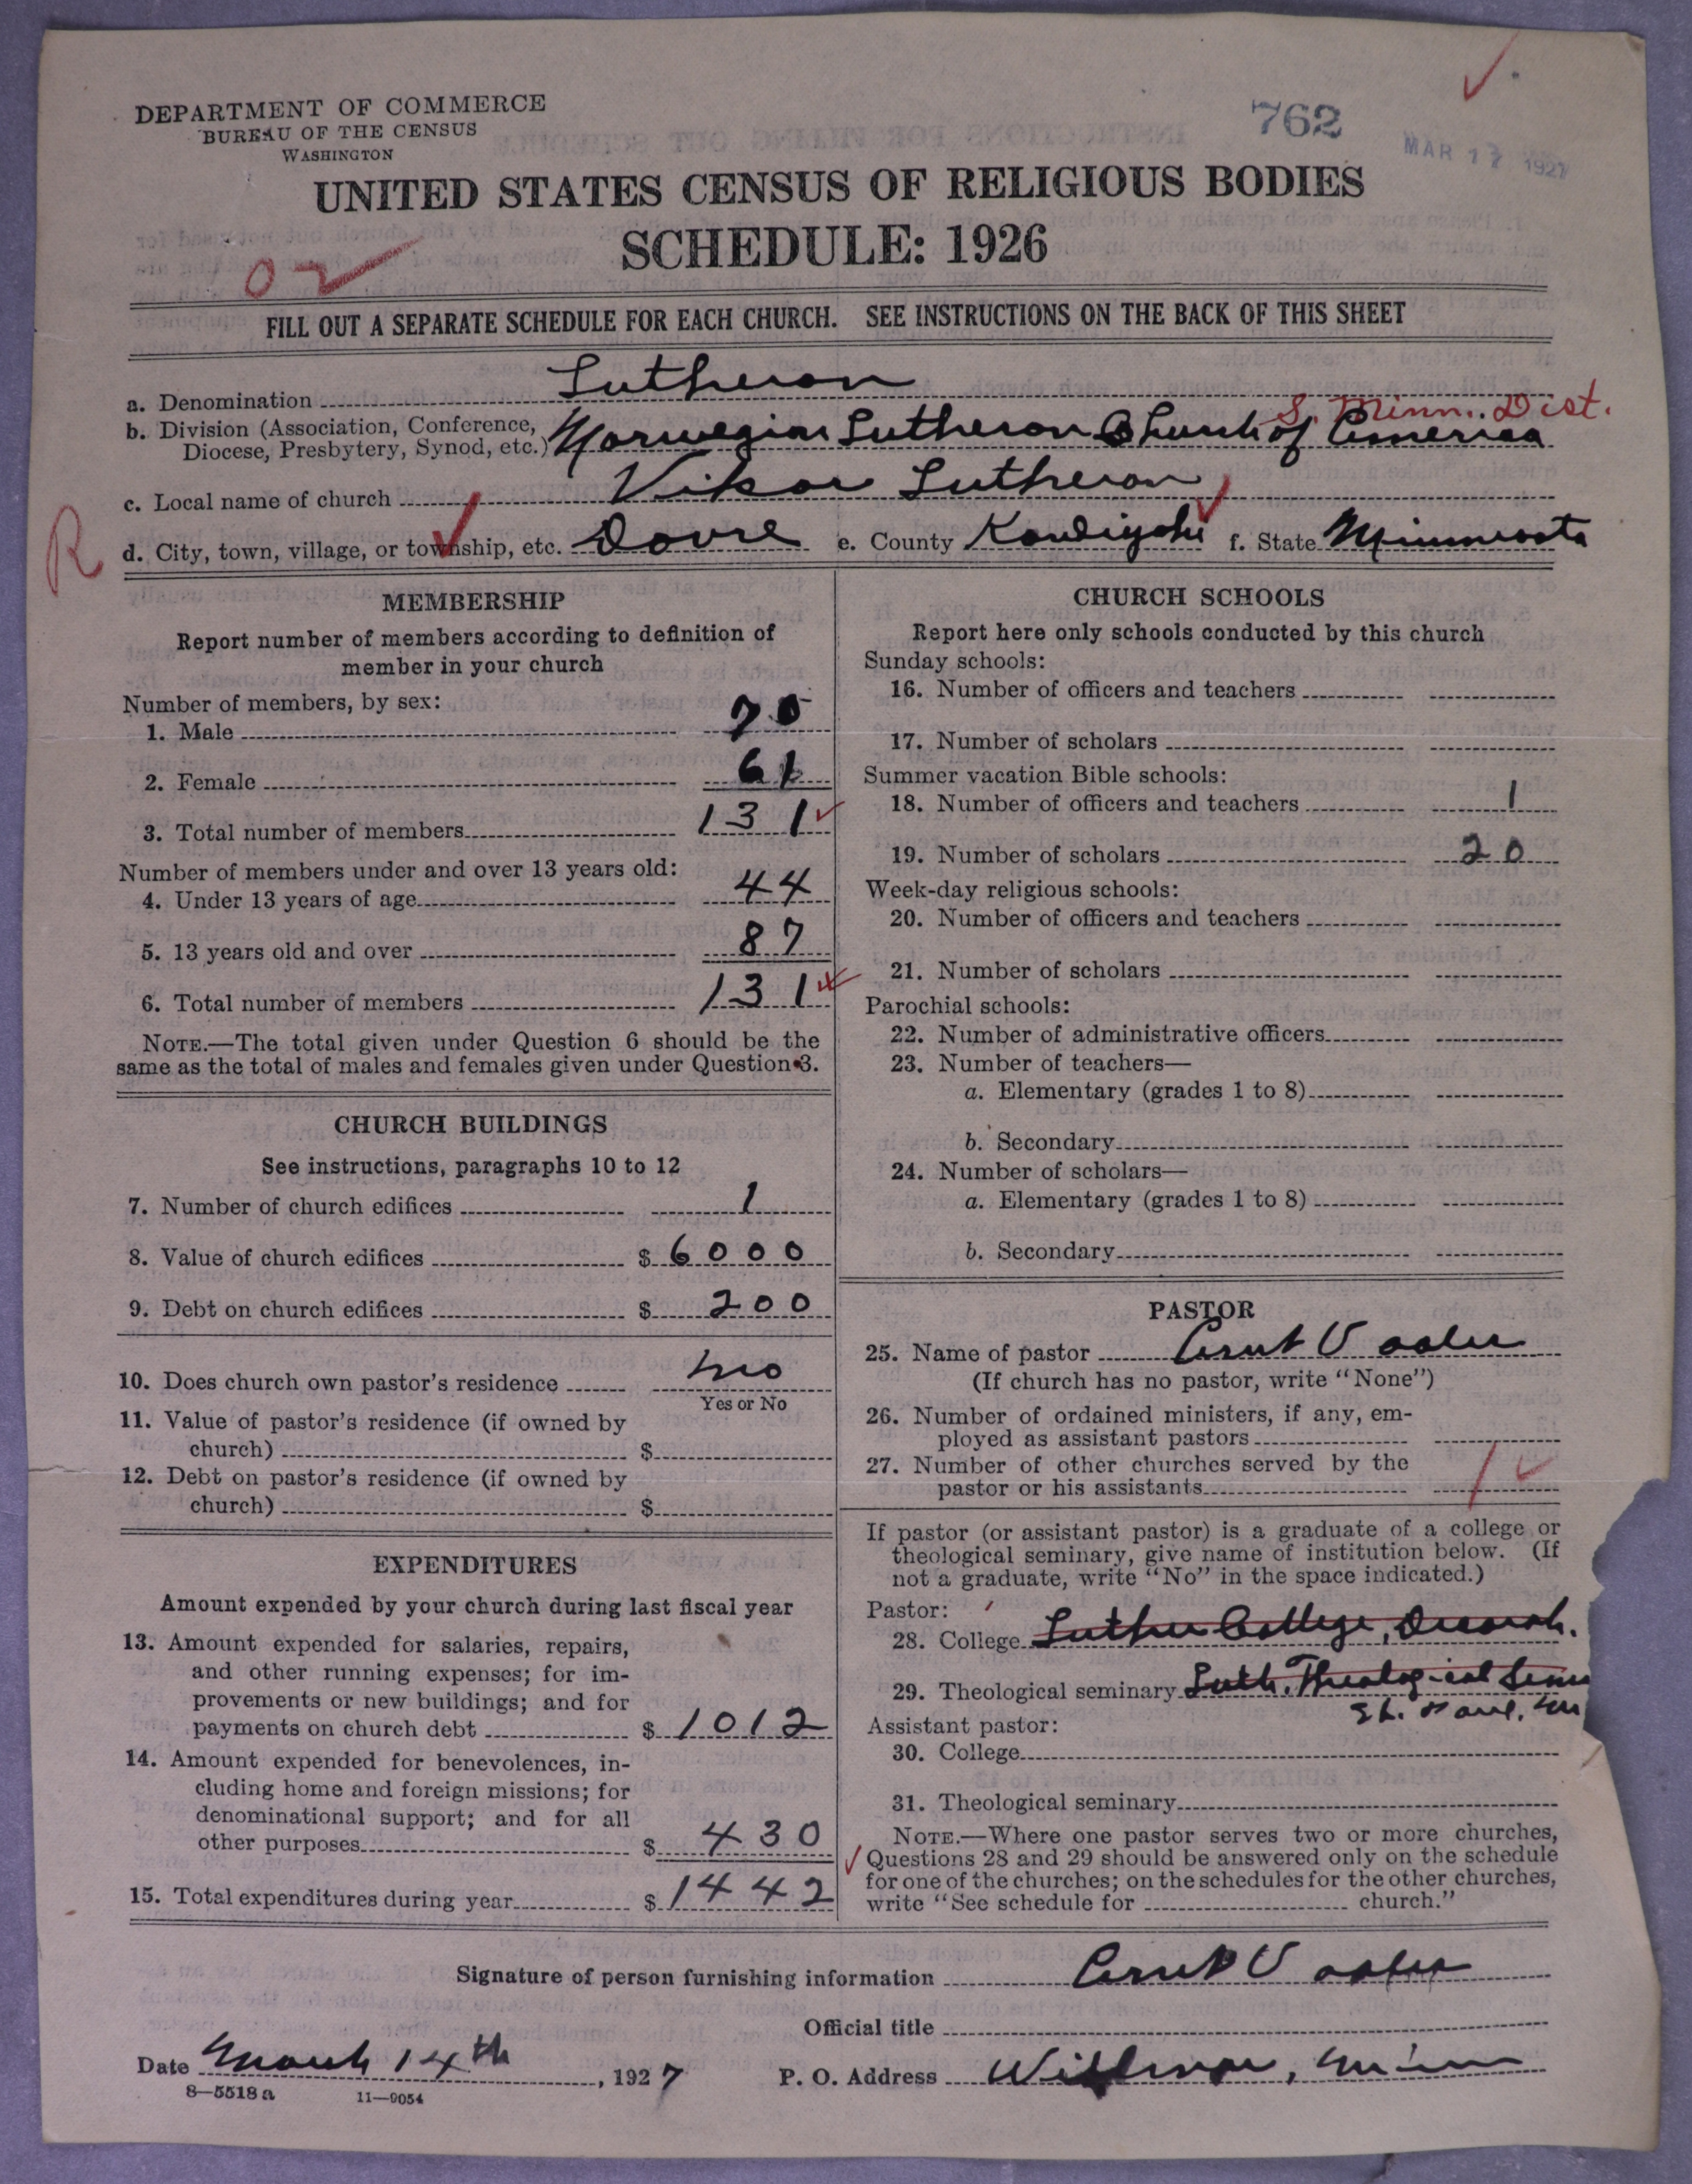 DEPARTMENT OF COMMERCE
BUREAU OF THE CENSUS
WASHINGTON
762
MAR 17 1927
UNITED STATES CENSUS OF RELIGIOUS BODIES
SCHEDULE: 1926
02
FILL OUT A SEPARATE SCHEDULE FOR EACH CHURCH. SEE INSTRUCTIONS ON THE BACK OF THIS SHEET
a. Denomination Lutheran
S. Minn. Dist.
b. Division (Association, Conference, Diocese, Presbytery, Synod, etc.) Norwegian Lutheran Church of America
c. Local name of church Vikor Lutheran
R
d. City, town, village, or township, etc. Dovre e. County Kandiyohi f. State Minnesota
MEMBERSHIP
Report number of members according to definition of
member in your church
Number of members, by sex:
1. Male 70
2. Female 61
3. Total number of members 131
Number of members under and over 13 years old:
4. Under 13 years of age 44
5. 13 years old and over 87
6. Total number of members 131
NOTE.—The total given under Question 6 should be the
same as the total of males and females given under Question 3.
CHURCH BUILDINGS
See instructions, paragraphs 10 to 12
7. Number of church edifices 1
8. Value of church edifices $ 6000
9. Debt on church edifices $ 200
10. Does church own pastor's residence no
Yes or No
11. Value of pastor's residence (if owned by
church) $
12. Debt on pastor's residence (if owned by
church) $
EXPENDITURES
Amount expended by your church during last fiscal year
13. Amount expended for salaries, repairs,
and other running expenses; for im-
provements or new buildings; and for
payments on church debt $ 1012
14. Amount expended for benevolences, in-
cluding home and foreign missions; for
denominational support; and for all
other purposes $ 430
15. Total expenditures during year $ 1442
CHURCH SCHOOLS
Report here only schools conducted by this church
Sunday schools:
16. Number of officers and teachers
17. Number of scholars
Summer vacation Bible schools:
18. Number of officers and teachers 1
19. Number of scholars 20
Week-day religious schools:
20. Number of officers and teachers
21. Number of scholars
Parochial schools:
22. Number of administrative officers
23. Number of teachers—
a. Elementary (grades 1 to 8)
b. Secondary
24. Number of scholars—
a. Elementary (grades 1 to 8)
b. Secondary
PASTOR
25. Name of pastor
(If church has no pastor, write "None")
26. Number of ordained ministers, if any, em-
ployed as assistant pastors
27. Number of other churches served by the
pastor or his assistants 1
If pastor (or assistant pastor) is a graduate of a college or
theological seminary, give name of institution below. (If
not a graduate, write "No" in the space indicated.)
Pastor:
28. College Luther College, Decorah.
29. Theological seminary Luth. Theological Sem
St. Paul,
Assistant pastor:
30. College
31. Theological seminary
NOTE.—Where one pastor serves two or more churches,
Questions 28 and 29 should be answered only on the schedule
for one of the churches; on the schedules for the other churches,
write "See schedule for church."
Signature of person furnishing information
Official title
Date March 14th, 1927 P. O. Address Willmar, Minn
8—5518a 11—9054